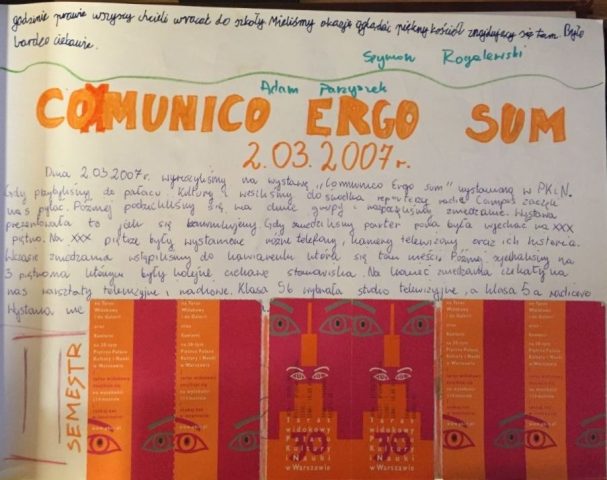 godzinie prawie wszyscy chcieli wracać do szkoły. Mieliśmy okazję oglądać piękny kościół znajdujący się tam. Było
bardzo ciekawie.
Szymon Rogalewski
Adam Parzyszek
COMUNICO ERGO SUM
2.03.2007r.
Dnia 2.03.2007r. wyruszyliśmy na wystawę "Comunico Ergo sum" wystawianą w PKiN.
Gdy przybyliśmy do pałacu Kultury i weszliśmy do środka reporterzy radia Campus zaczęli
nas pytać. Później podzieliliśmy się na dwie grupy i rozpoczęliśmy zwiedzanie. Wystawa
prezentowała to jak się komunikujemy. Gdy zwiedziliśmy parter pora była wjechać na XXX
piętro. Na XXX piętrze były wystawione różne telefony, kamery telewizyjne oraz ich historia.
W czasie zwiedzania wstąpiliśmy do kawiarenki która się tam mieści. Później zjechaliśmy na
3 piętro na którym były kolejne, ciekawe stanowiska. Na koniec zwiedzania czekały na
nas warsztaty telewizyjne i radiowe. Klasa 5b wybrała studio telewizyjne, a klasa 5a radiowe
Wystawa
SEMESTR
na Taras
Widokowy
i do Galerii
oraz
Kawiarni
na 30-tym
Piętrze Pałacu
Kultury i Nauki
w Warszawie
Taras
widokowy
Pałacu
Kultury
i Nauki
w Warszawie
Taras
widokowy
Pałacu
Kultury
i Nauki
w Warszawie